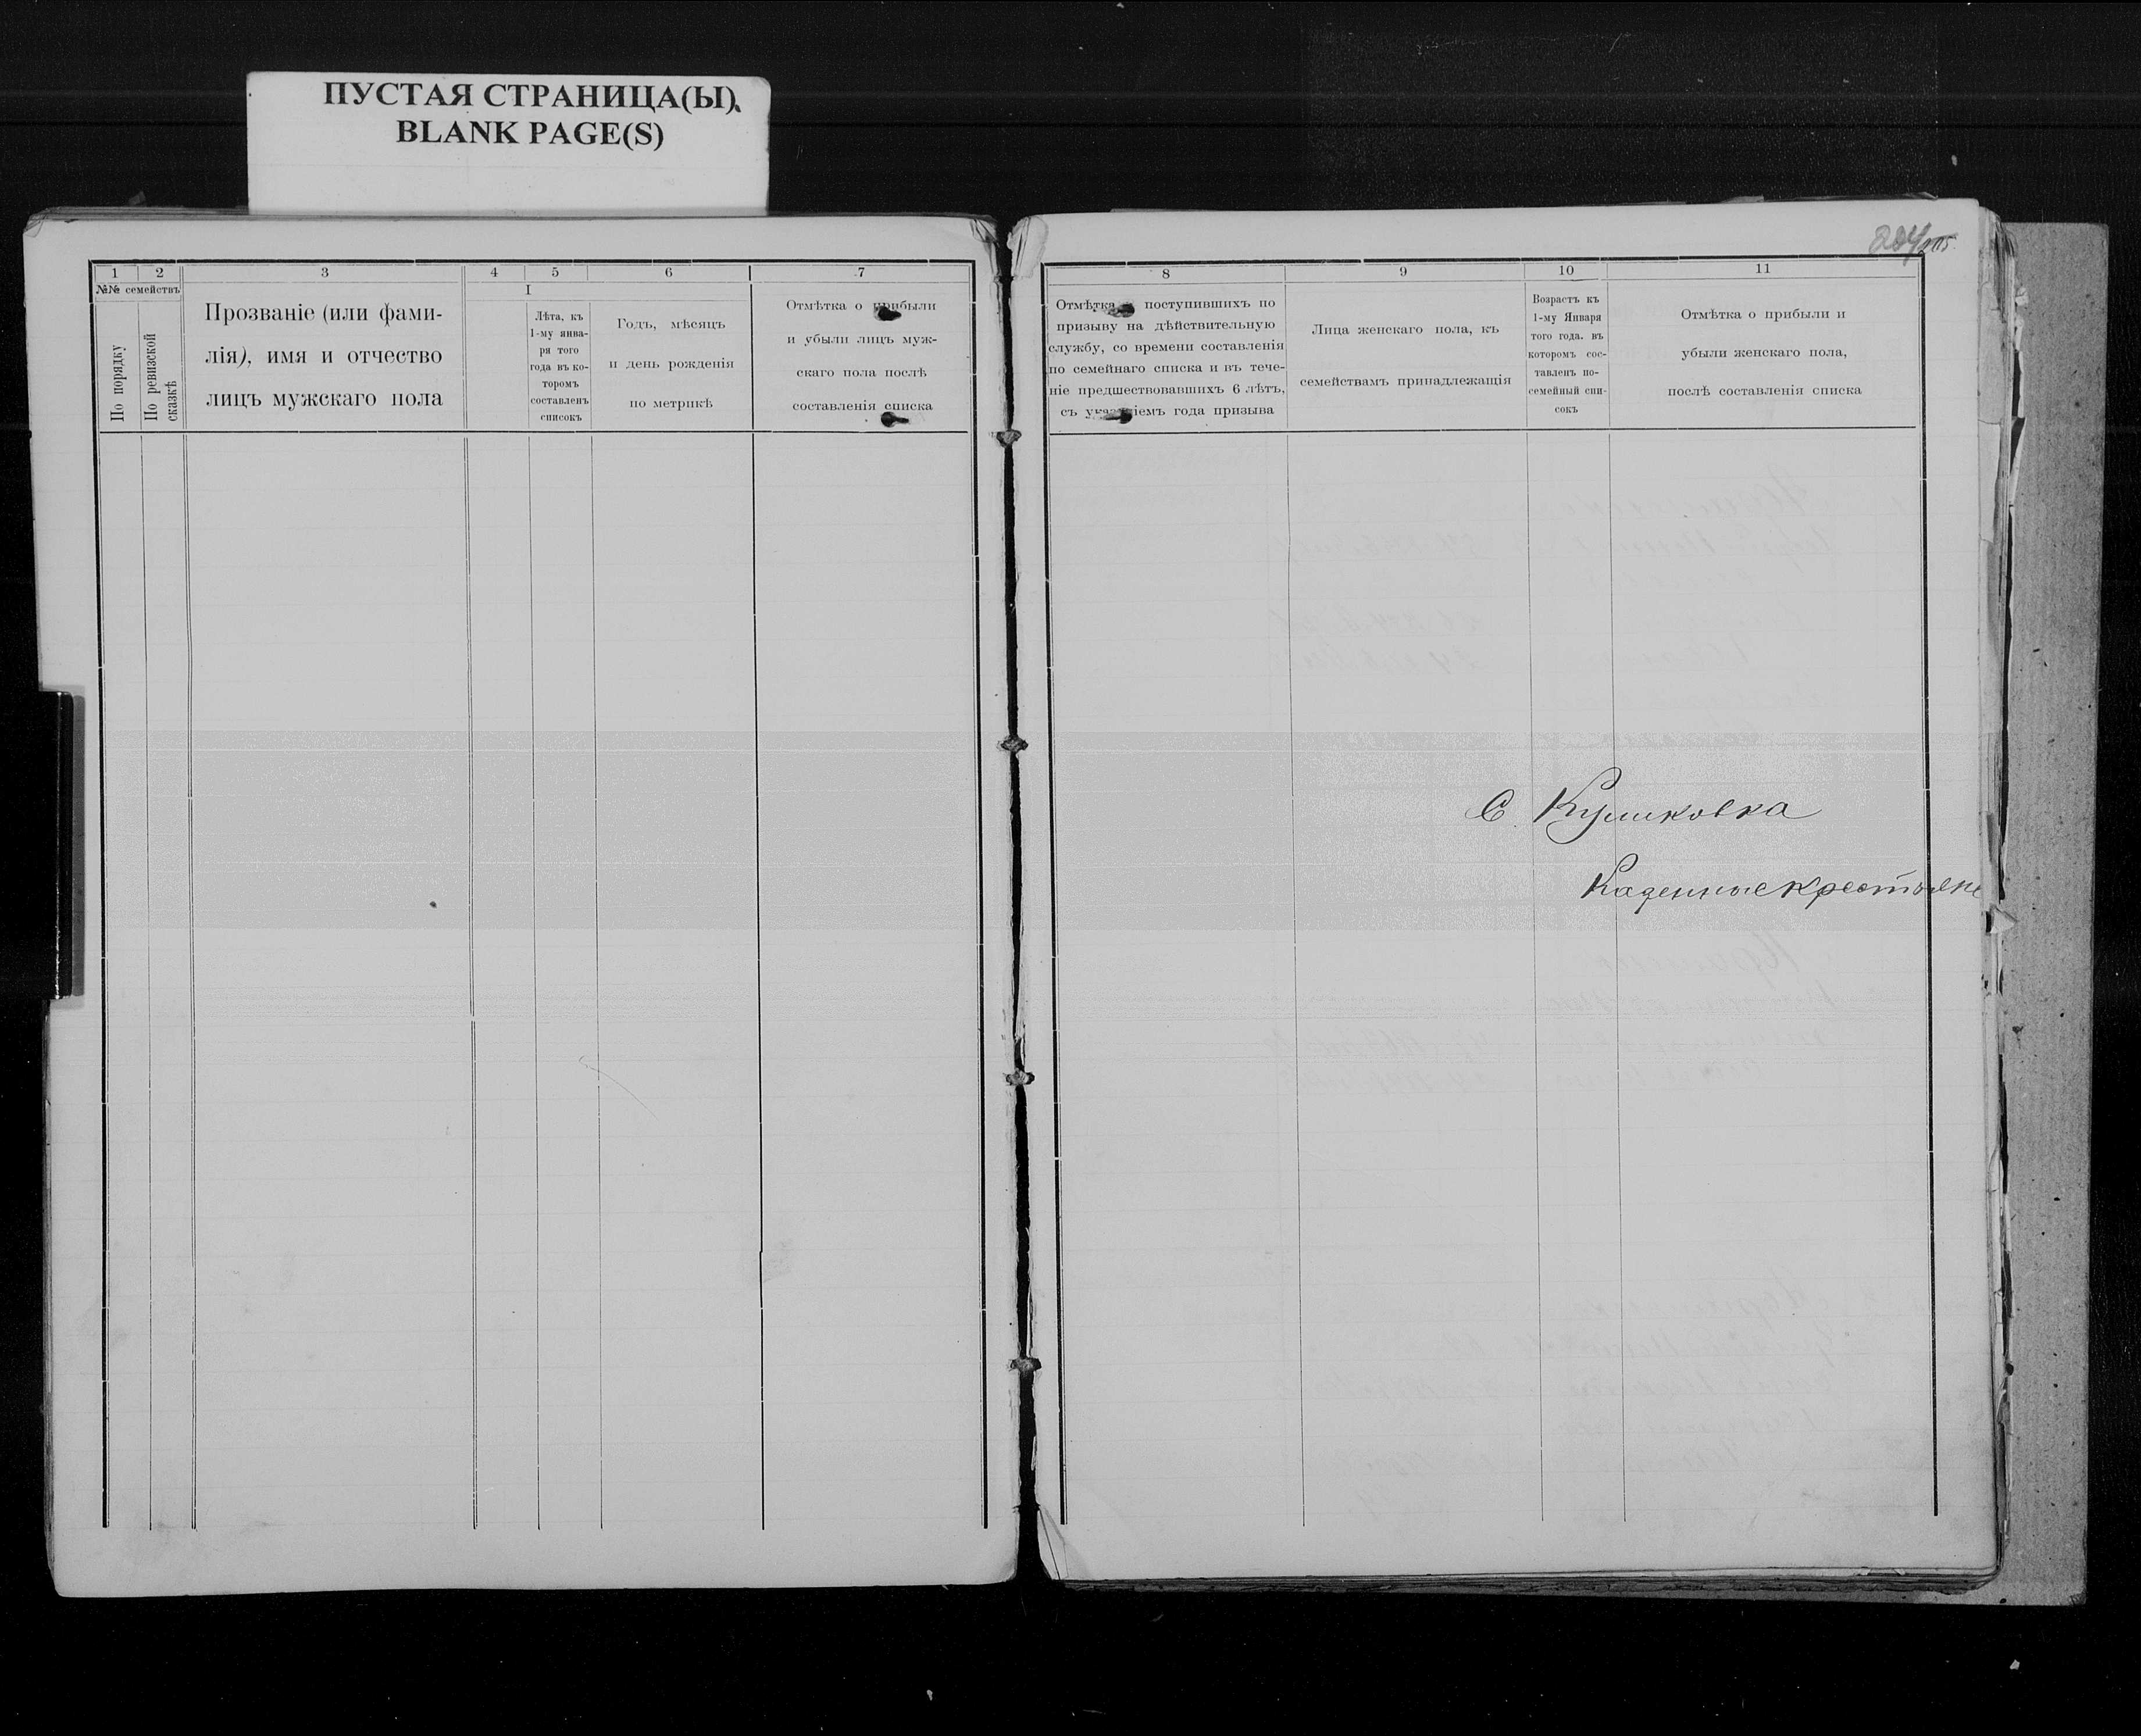 ПУСТАЯ СТРАНИЦА(Ы)
BLANK PAGE(S)
1
2
3
4
5
6
7
№№ семействъ
По порядку
По ревизской
сказкѣ
Прозваніе (или фами-
лія), имя и отчество
лицъ мужскаго пола
I
Лѣта, къ
1-му янва-
ря того
года въ ко-
торомъ
составленъ
списокъ
Годъ, мѣсяцъ
и день рожденія
по метрикѣ
Отмѣтка о прибыли
и убыли лицъ муж-
скаго пола послѣ
составленія списка
8
9
10
11
Отмѣтка поступившихъ по
призыву на дѣйствительную
службу, со времени составленія
по семейнаго списка и въ тече-
ніе предшествовавшихъ 6 лѣтъ,
съ указаніемъ года призыва
Лица женскаго пола, къ
семействамъ принадлежащія
Возрастъ къ
1-му Января
того года. въ
которомъ сос-
тавленъ по-
семейный спи-
сокъ
Отмѣтка о прибыли и
убыли женскаго пола,
послѣ составленія списка
С. Куликовка
Казенные крестьяне